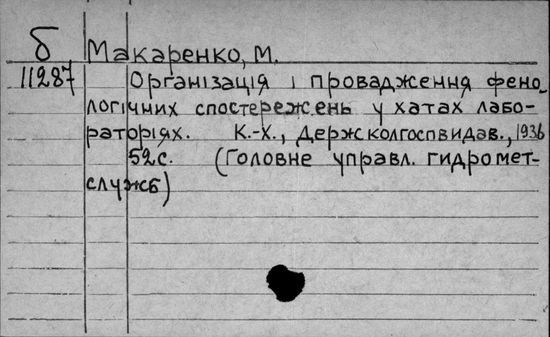 б Макаренко, М.
11287 Організація і провадження фено-
логічних спостережень у хатах лабо-
раторіях. К.-Х., Держколгоспвидав., 1936
52 с. (Головне управл. гидромет-
служб)